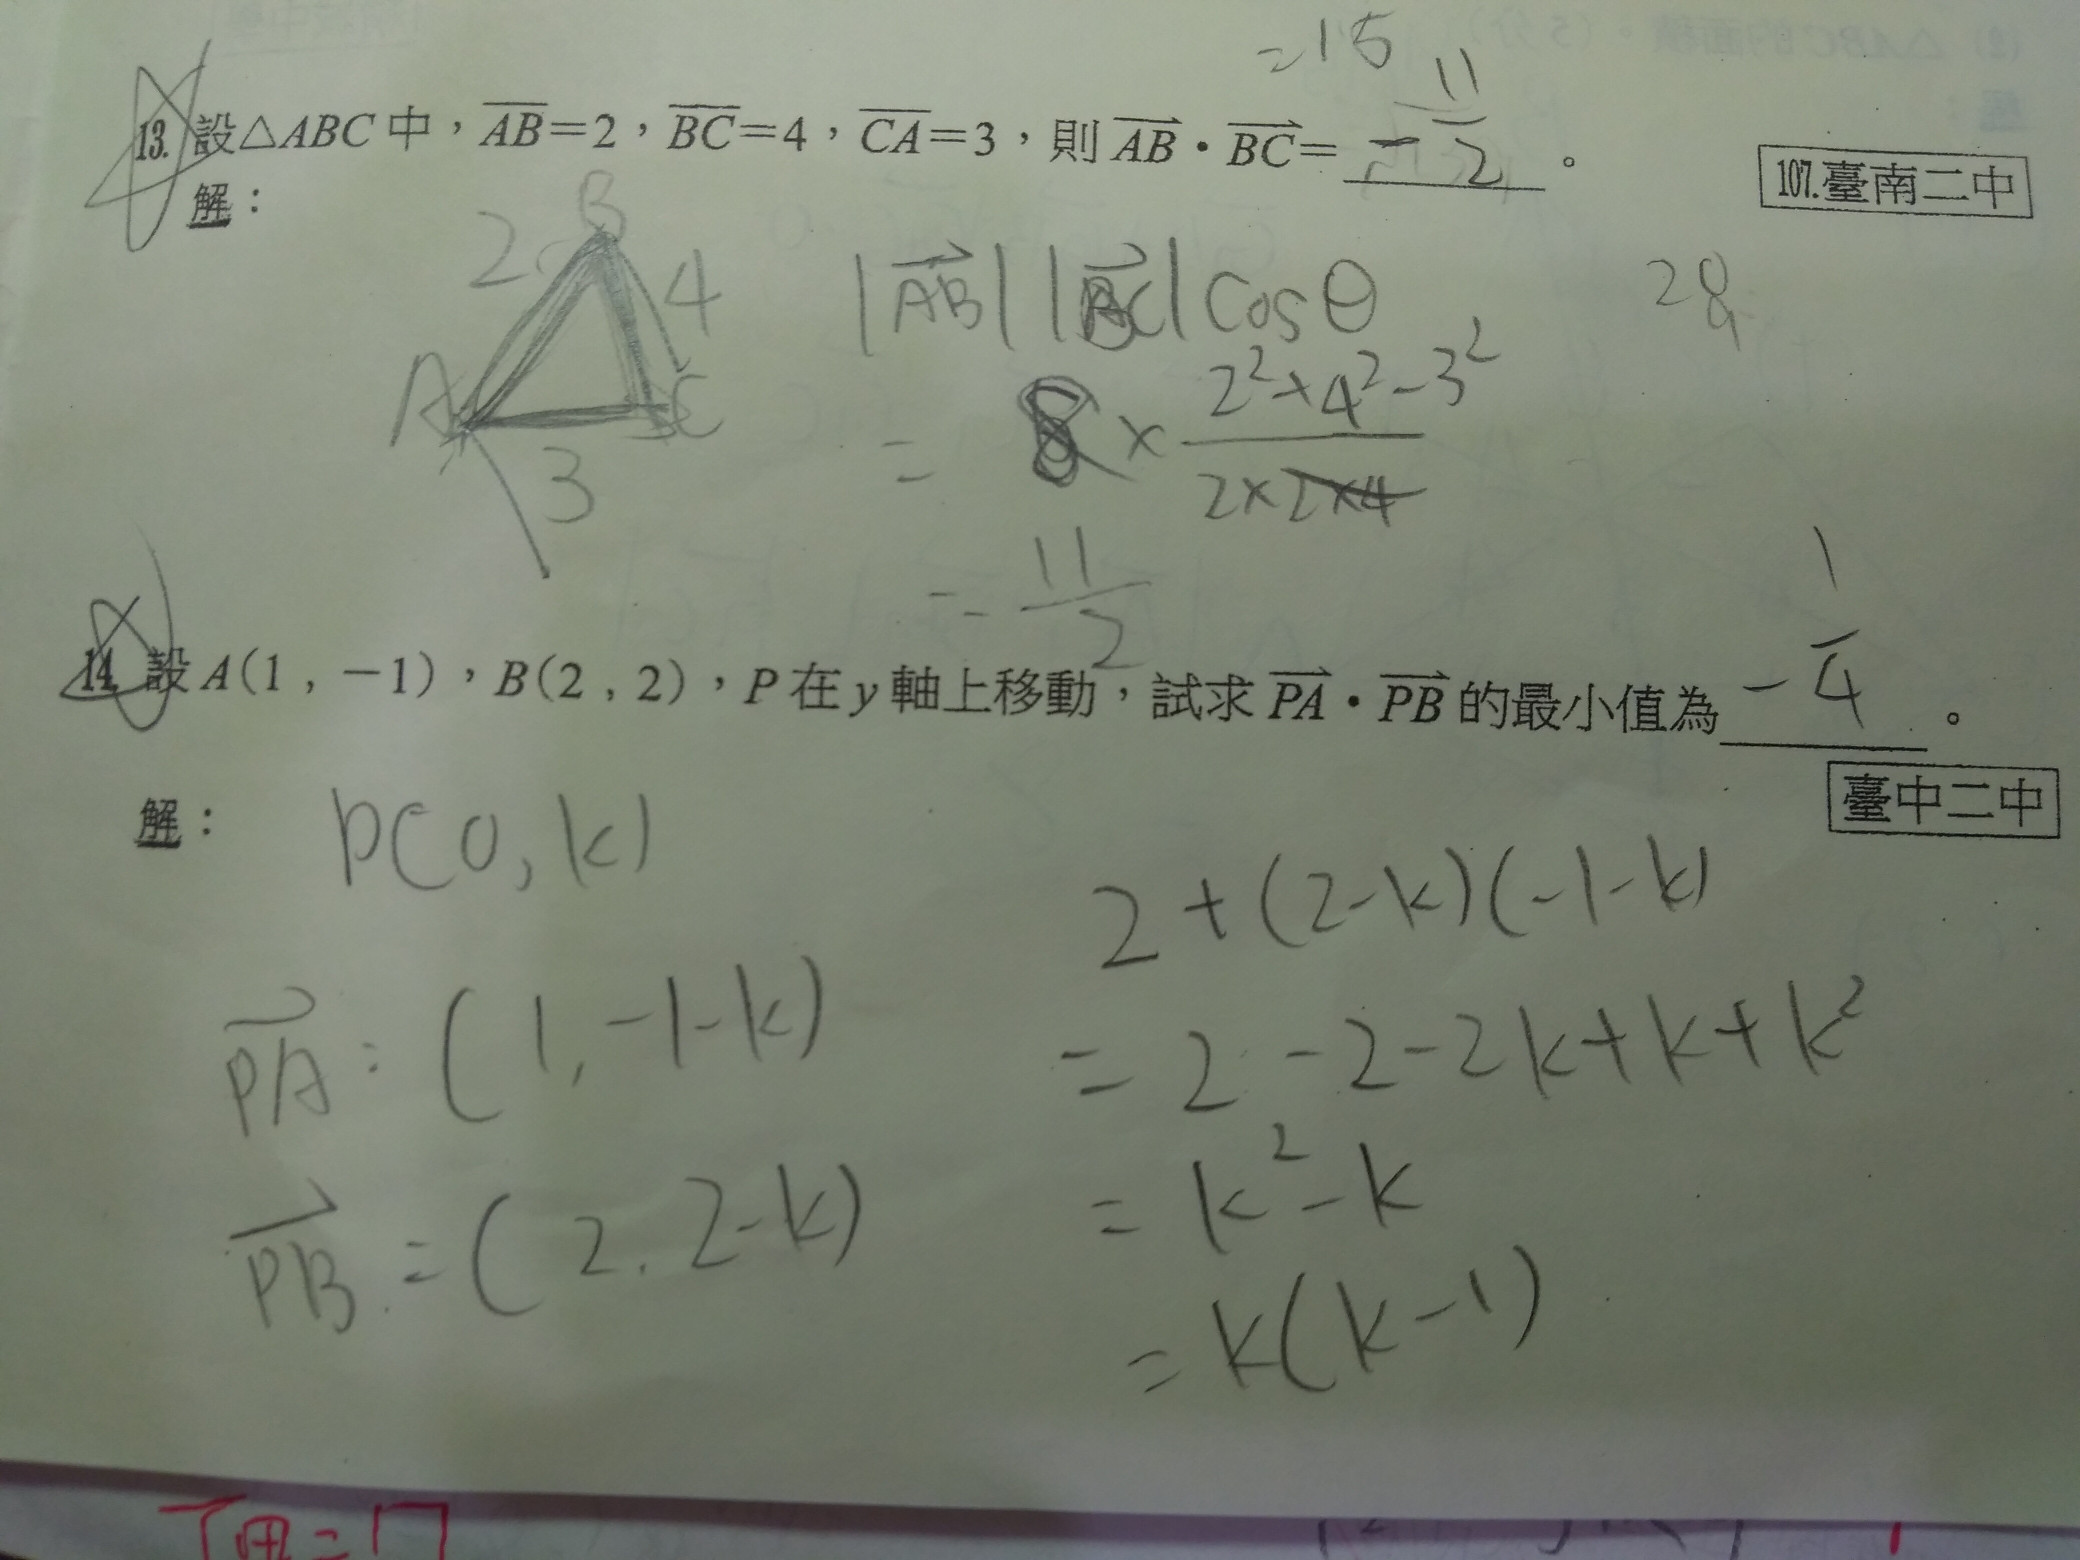 =15
13. 設△ABC中，AB=2，BC=4，CA=3，則AB・BC= -11/2 。
107.臺南二中
解：
B
2
4
A
C
3
|AB||BC|cosθ
28
= 8 × (2²+4²-3²)/(2×2×4)
= 11/2
14. 設A(1，-1)，B(2，2)，P在y軸上移動，試求PA・PB的最小值為 -1/4 。
臺中二中
解：
P(0,k)
PA:(1,-1-k)
PB=(2,2-k)
2+(2-k)(-1-k)
=2-2-2k+k+k²
=k²-k
=k(k-1)